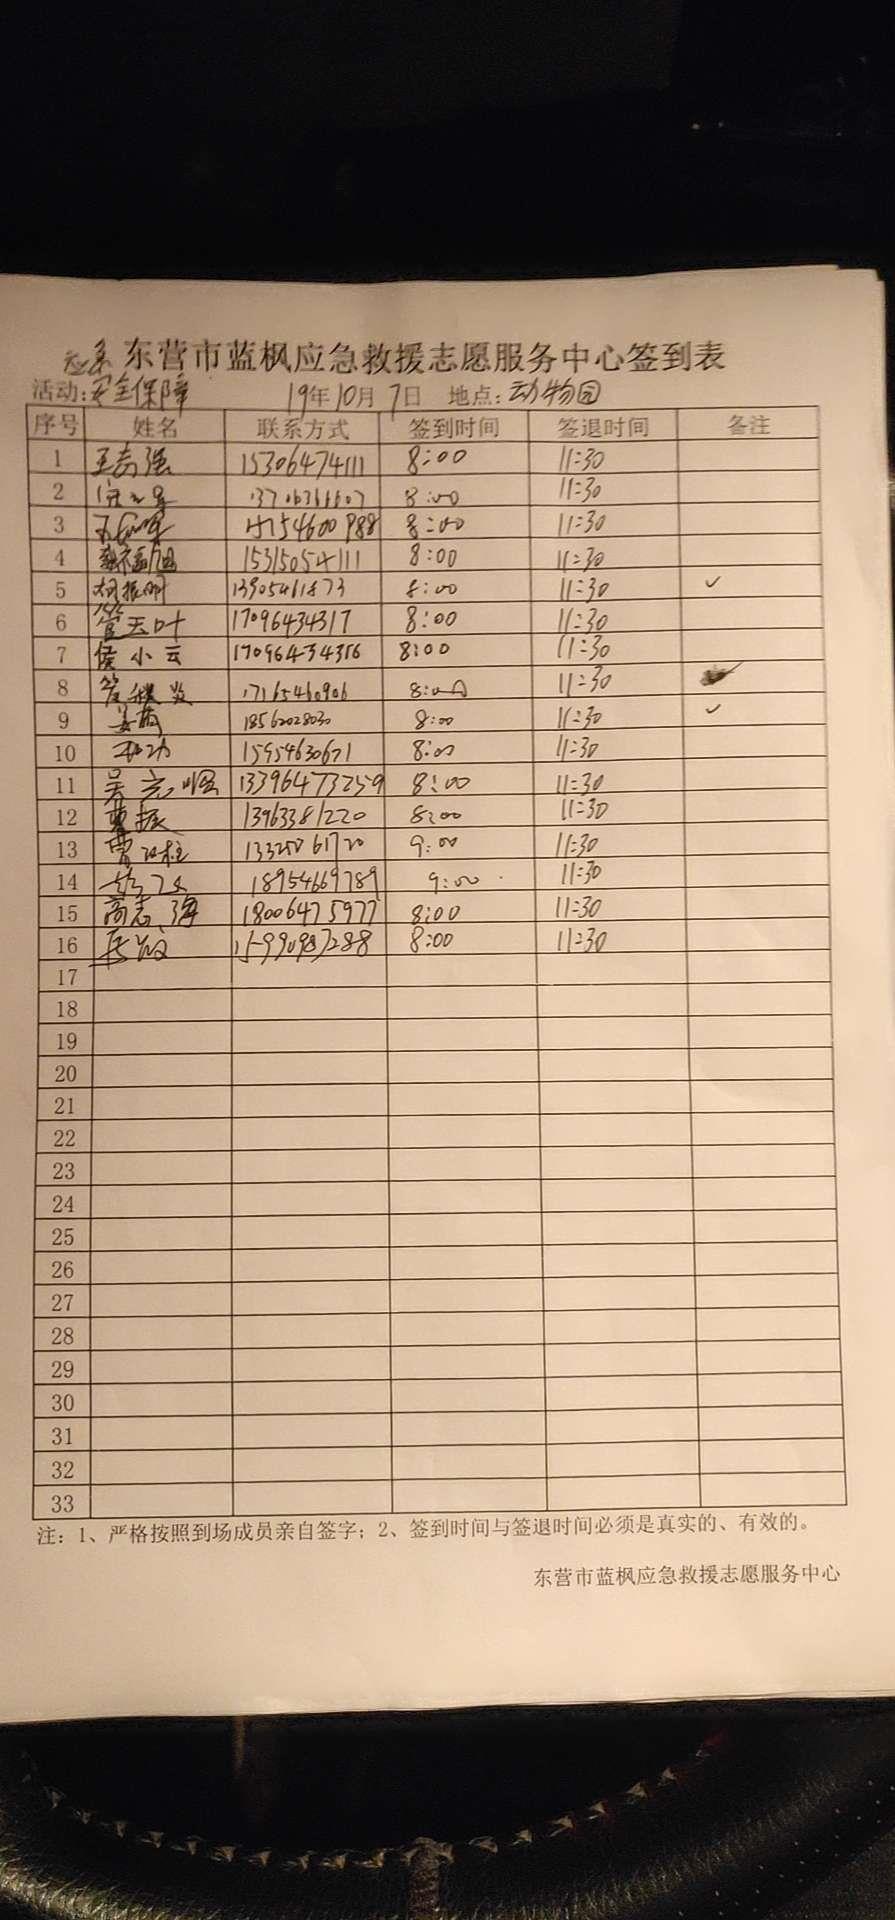 东营市蓝枫应急救援志愿服务中心签到表
活动:安全保障 19年10月7日 地点:动物园
序号 姓名 联系方式 签到时间 签退时间 备注
1 王志强 15306474111 8:00 11:30
2 8:00 11:30
3 8:00 11:30
4 15315054111 8:00 11:30
5 13905461873 8:00 11:30 ✓
6 管玉叶 17096434317 8:00 11:30
7 侯小云 17096434316 8:00 11:30
8 17165460906 8:00 11:30
9 18562028030 8:00 11:30 ✓
10 15954630671 8:00 11:30
11 13396473259 8:00 11:30
12 曹振 13963381220 8:00 11:30
13 9:00 11:30
14 18954669789 9:00 11:30
15 商志海 18006475977 8:00 11:30
16 8:00 11:30
17
18
19
20
21
22
23
24
25
26
27
28
29
30
31
32
33
注：1、严格按照到场成员亲自签字；2、签到时间与签退时间必须是真实的、有效的。
东营市蓝枫应急救援志愿服务中心